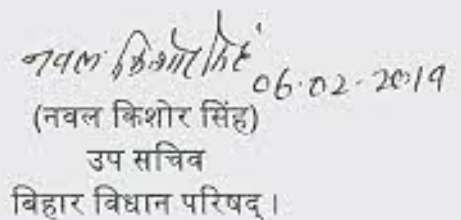 नवल किशोर सिंह
06.02.2019
(नवल किशोर सिंह)
उप सचिव
बिहार विधान परिषद्।